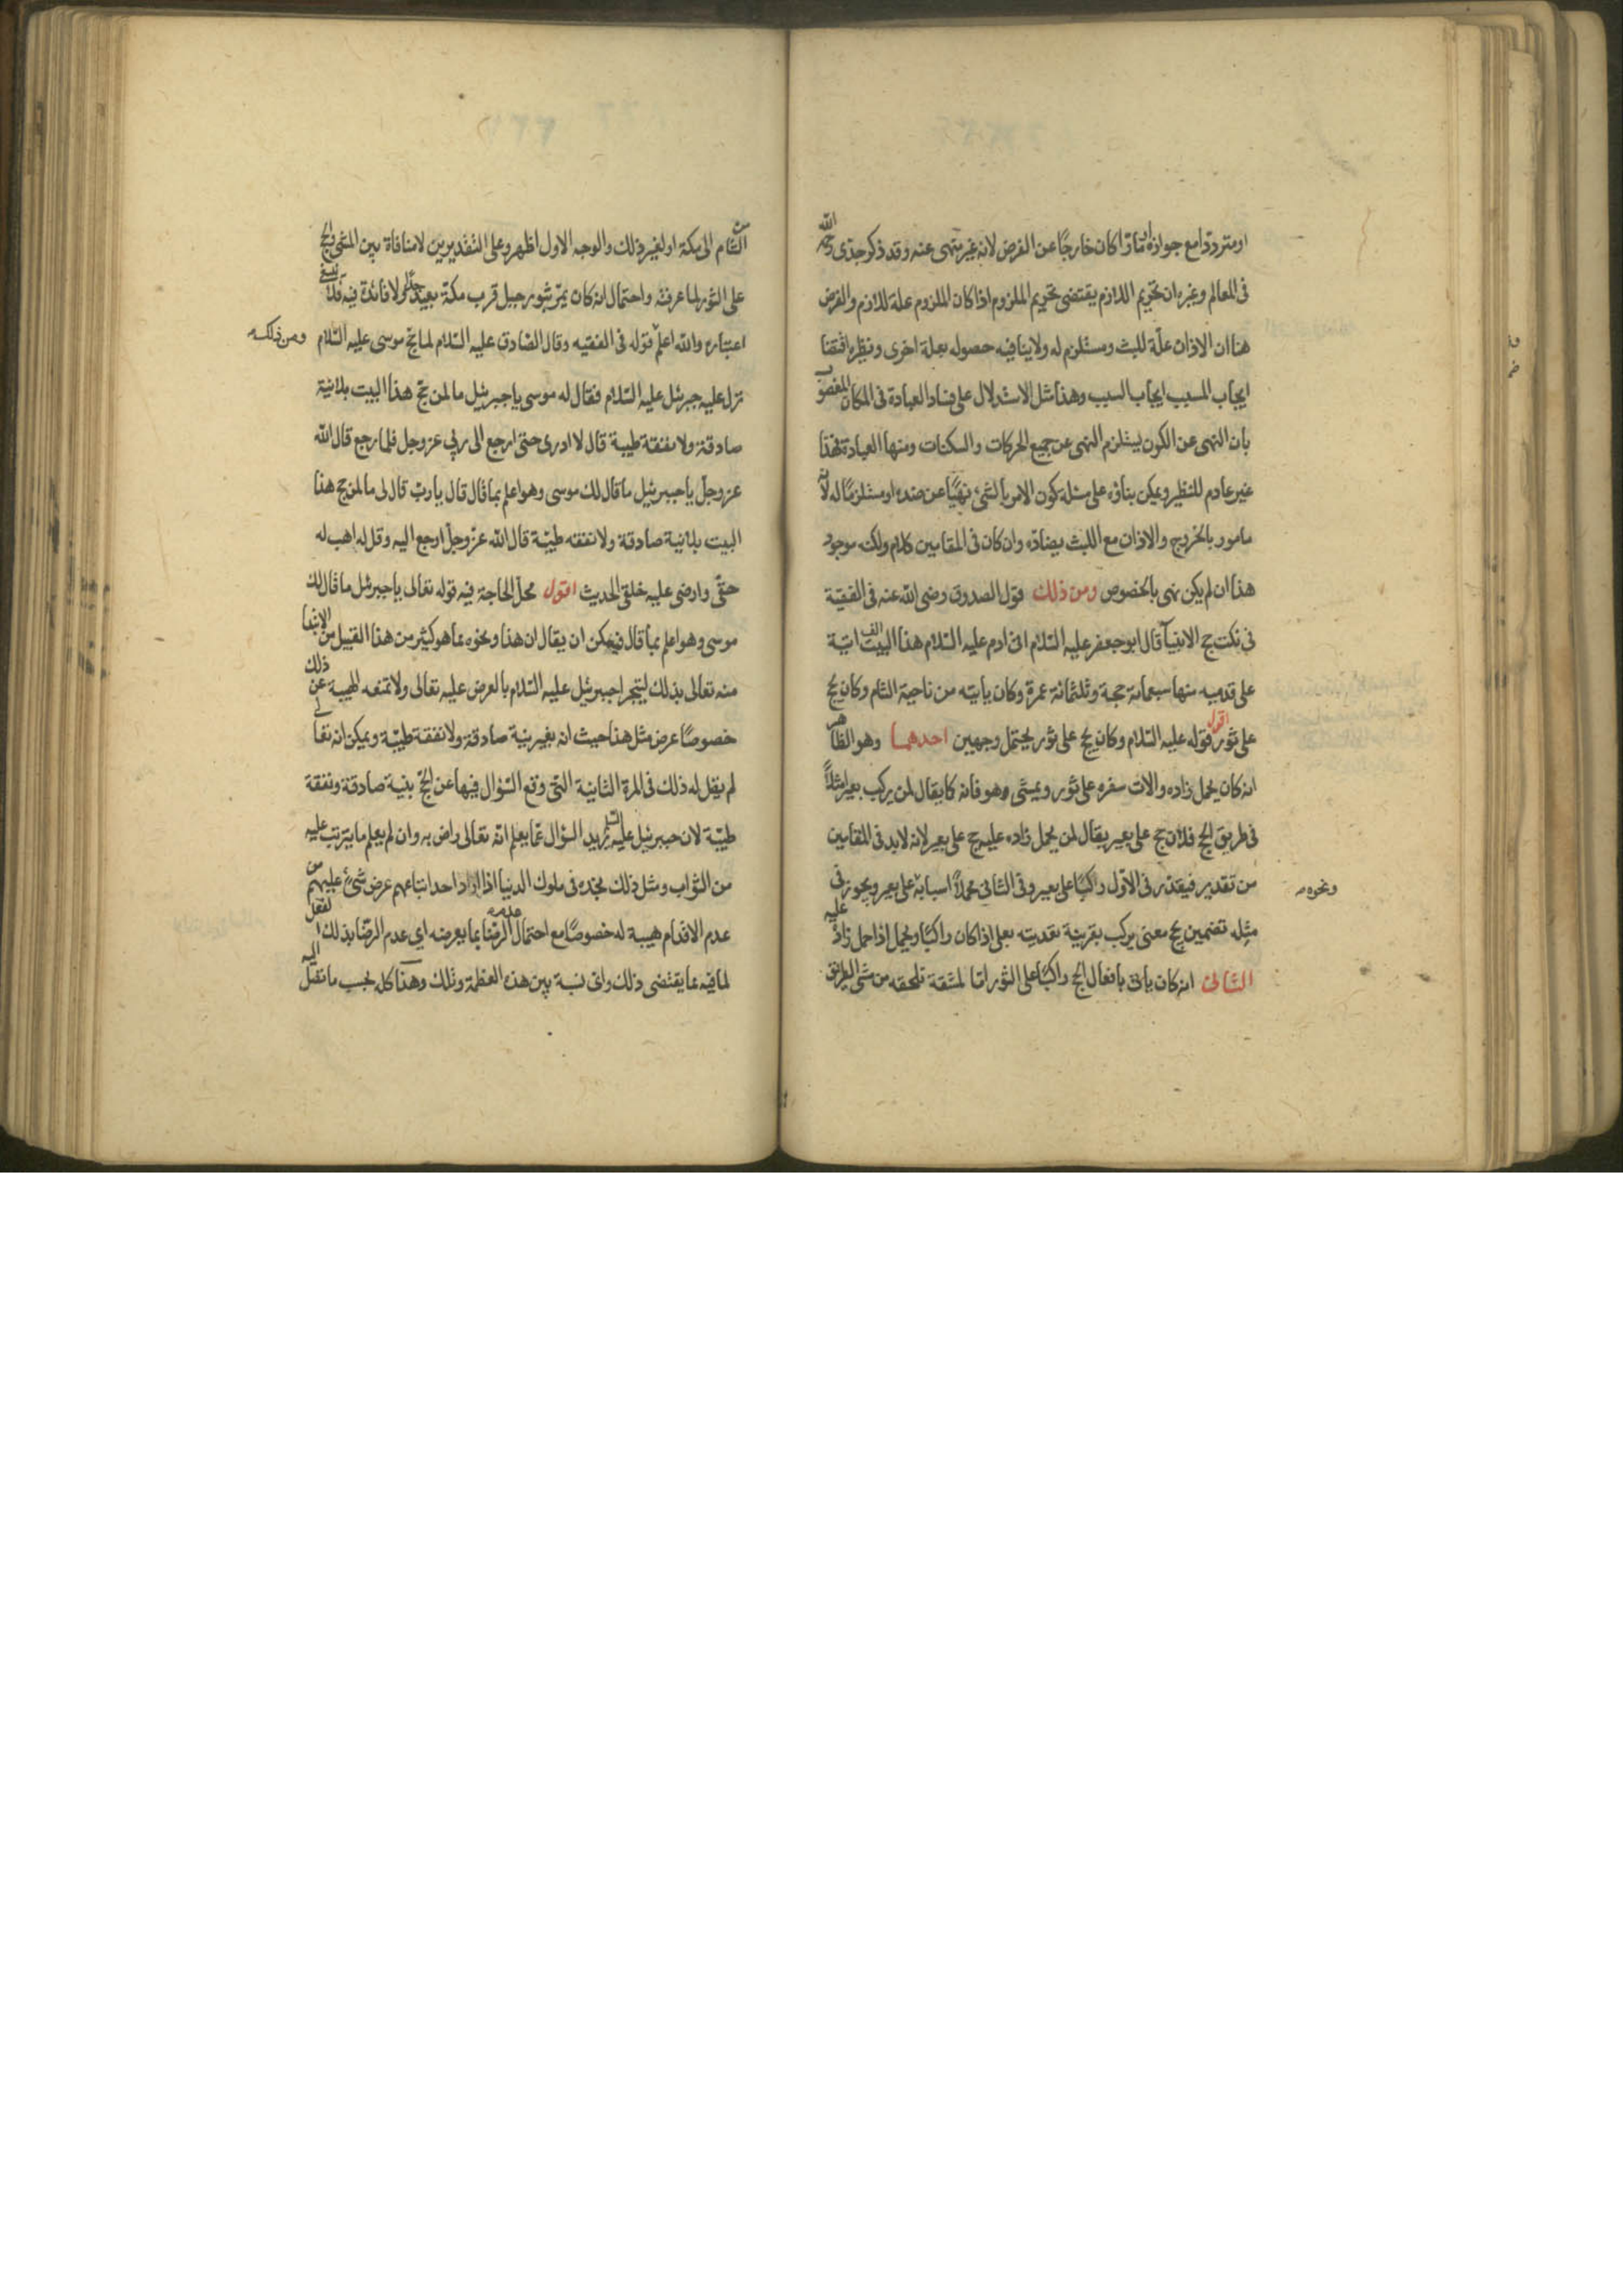 او مترددا مع جوازه اما اذا كان خارجًا عن الفرض لانه غير منهى عنه وقد ذكر جدى رحمه الله
فى المعالم وغيره ان تحريم اللازم يقتضى تحريم الملزوم اذا كان الملزوم علة للازم والفرض
هنا ان الاذان علّة للبث ومستلزم له ولا ينافيه حصوله بعلة اخرى ونظيره اقتضا
ايجاب المسبب ايجاب السبب وهذا مثل الاستدلال على فساد العبادة فى المكان المغصوب
بان النهى عن الكون يستلزم النهى عن جميع الحركات والسكنات ومنها العبادة فهذا
غير عادم للنظير ويمكن بناؤه على مسئلة كون الامر بالشئ نهيًا عن ضده او مستلزمًا له لانه
مامور بالخروج والاذان مع اللبث يضادّه وان كان فى المقامين كلام ولكنه موجود
هذا ان لم يكن نهى بالخصوص ومن ذلك قول الصدوق رضى الله عنه فى الفقيه
فى نكت حج الانبيآ قال ابو جعفر عليه السّلام اتى ادم عليه السّلام هذا البيت الف اتية
على قدميه منها سبعمائة حجة وثلثمائة عمرة وكان ياتيه من ناحية الشام وكان يحج
على ثور اقول قوله عليه السّلام وكان يحج على ثور يحتمل وجهين احدهما وهو الظاهر
انه كان يحمل زاده والات سفره على ثور ويمشى وهو فانه كما يقال لمن يركب بعيرا مثلًا
فى طريق الحج فلان حج على بعير يقال لمن يحمل زاده عليه حج على بعير لانه لابد فى المقامين
من تقدير فيقدّر فى الاوّل راكبًا على بعير وفى الثانى محملًا اسبابه على بعير ويجوز فى ونحوه
مثله تضمين يحج معنى يركب بقرينة تعديته بعلى اذا كان راكبًا ويحمل اذا حمل زادًا عليه
الثانى انه كان ياتى بافعال الحج راكبًا على الثور امّا لمشقة تلحقه من مشى الطريق
من الشام الى مكة او لغير ذلك والوجه الاول اظهر وعلى التقديرين لا منافاة بين المشى والحج
على الثور لما عرفته واحتمال انه كان يمرّ بثور جبل قرب مكة بعيد جدًا ولا فائدة فيه فلا ينبغى
اعتباره والله اعلم قوله فى الفقيه وقال الصّادق عليه السّلام لما حجّ موسى عليه السّلام ومن ذلك
نزل عليه جبرئيل عليه السّلام فقال له موسى يا جبرئيل ما لمن حجّ هذا البيت بلا نية
صادقة ولا نفقة طيبة قال لا ادرى حتى ارجع الى ربى عز وجل فلما رجع قال الله
عز وجلّ يا جبرئيل ما قال لك موسى وهو اعلم بما قال قال يا ربّ قال لى ما لمن حج هذا
البيت بلا نية صادقة ولا نفقة طيبّة قال الله عزّ وجلّ ارجع اليه وقل له اهب له
حقّى وارضى عليه خلقى الحديث اقول محلّ الحاجة فيه قوله تعالى يا جبرئيل ما قال لك
موسى وهو اعلم بما قال فيمكن ان يقال ان هذا ونحوه مما هو كثير من هذا القبيل من الابتدا
منه تعالى بذلك ليتجرا جبرئيل عليه السّلام بالعرض عليه تعالى ولا تمنعه الهيبة عن ذلك
خصوصًا عرض مثل هذا حيث انه بغير نية صادقة ولا نفقة طيبّة ويمكن انه تعالى
لم يقل له ذلك فى المرة الثانية التى وقع السّؤال فيها عن الحجّ بنية صادقة ونفقة
طيبّة لان جبرئيل عليه السّلم يريد السؤال عمّا يعلم انّه تعالى راض به وان لم يعلم ما يترتب عليه
من الثواب ومثل ذلك نجده فى ملوك الدنيا اذا اراد احد اتباعهم عرض شئ عليهم من
عدم الاقدام هيبة له خصوصًا مع احتمال عدم الرضا بما يعرضه اى عدم الرضّا بذلك الفعل
لما فيه مما يقتضى ذلك واىّ نسبة بين هذه العظمة وتلك وهذا كله بحسب ما نقل اليه